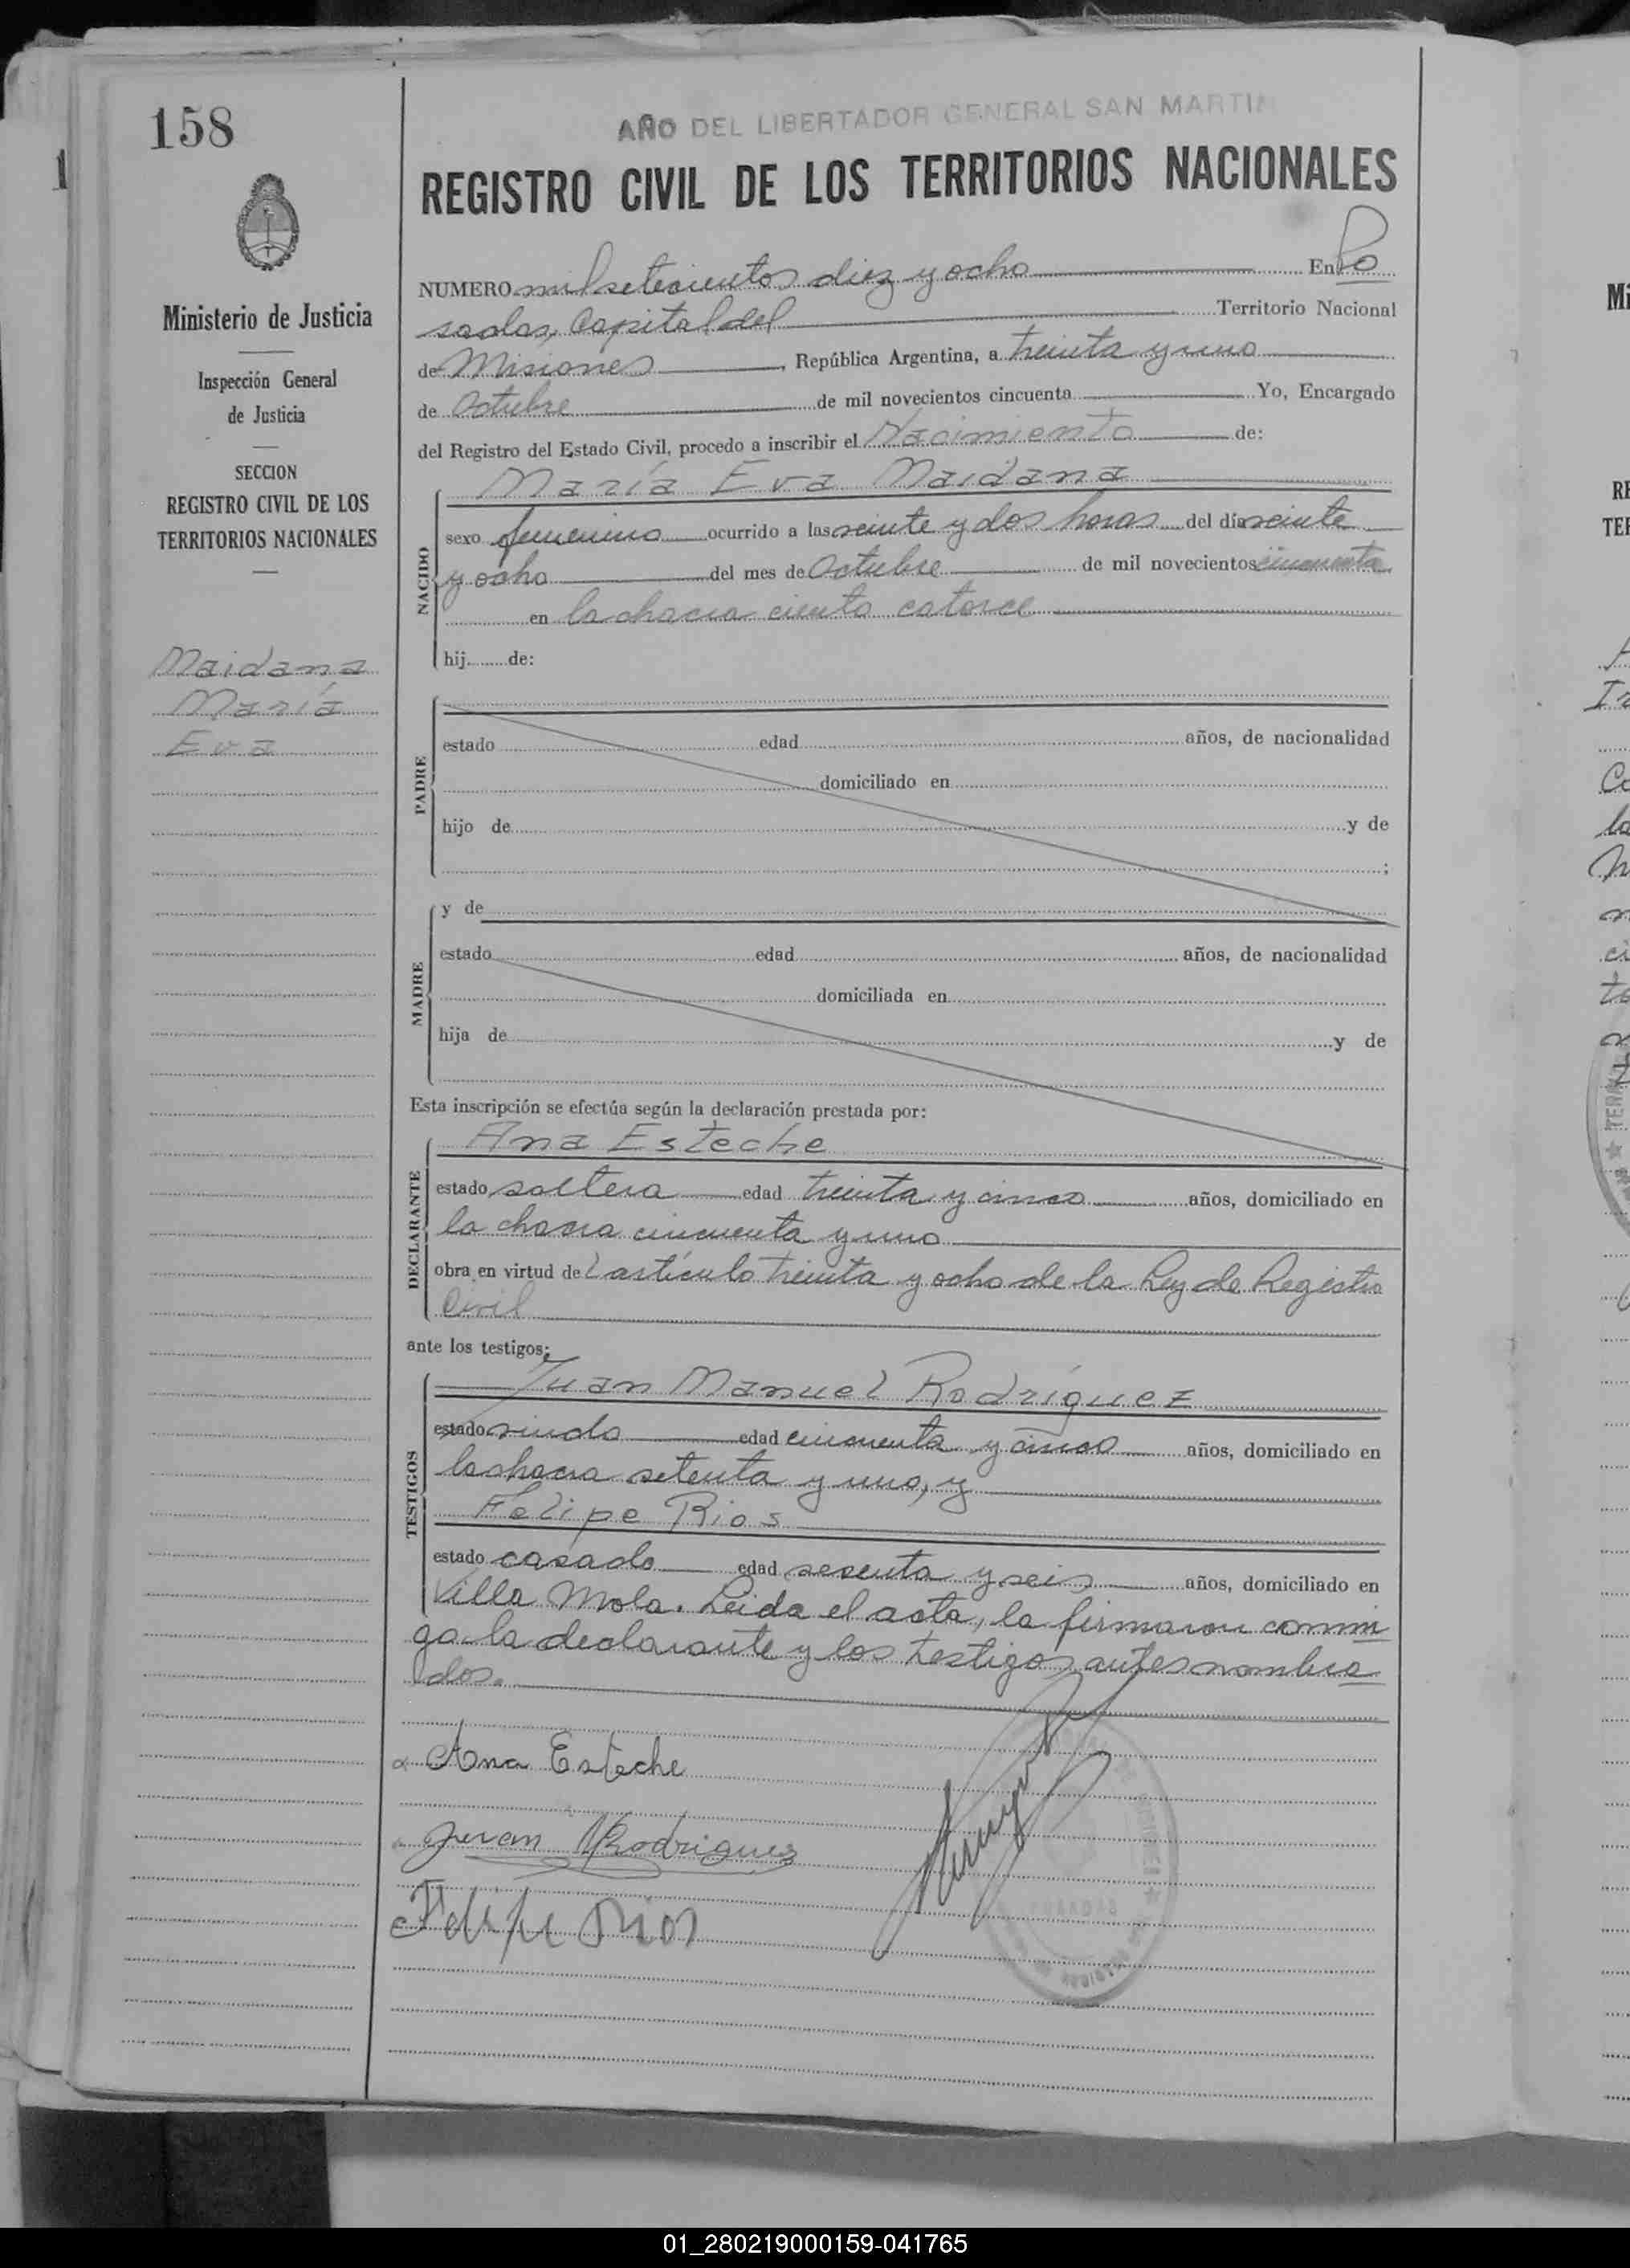 158
AÑO DEL LIBERTADOR GENERAL SAN MARTIN
REGISTRO CIVIL DE LOS TERRITORIOS NACIONALES
Ministerio de Justicia
Inspección General
de Justicia
SECCION
REGISTRO CIVIL DE LOS
TERRITORIOS NACIONALES
Maidana
María
Eva
NUMERO mil setecientos diez y ocho En Po
sadas, Capital del Territorio Nacional
de Misiones, República Argentina, a treinta y uno
de Octubre de mil novecientos cincuenta Yo, Encargado
del Registro del Estado Civil, procedo a inscribir el Nacimiento de:
NACIDO
María Eva Maidana
sexo femenino ocurrido a las veinte y dos horas del día veinte
y ocho del mes de Octubre de mil novecientos cincuenta
en la chacra ciento catorce
hij de:
PADRE
estado edad años, de nacionalidad
domiciliado en
hijo de y de
;
MADRE
y de
estado edad años, de nacionalidad
domiciliada en
hija de y de
Esta inscripción se efectúa según la declaración prestada por:
DECLARANTE
Ana Esteche
estado soltera edad treinta y cinco años, domiciliado en
la chacra cincuenta y uno
obra en virtud del artículo treinta y ocho de la Ley de Registro
Civil
ante los testigos:
TESTIGOS
Juan Manuel Rodríguez
estado viudo edad cincuenta y cinco años, domiciliado en
la chacra setenta y uno, y
Felipe Rios
estado casado edad sesenta y seis años, domiciliado en
Villa Mola. Leida el acta, la firmaron conmi
go la declarante y los testigos antes nombra
dos.
Ana Esteche
Juan M Rodriguez
Felipe Rios
POSADAS
01_280219000159-041765